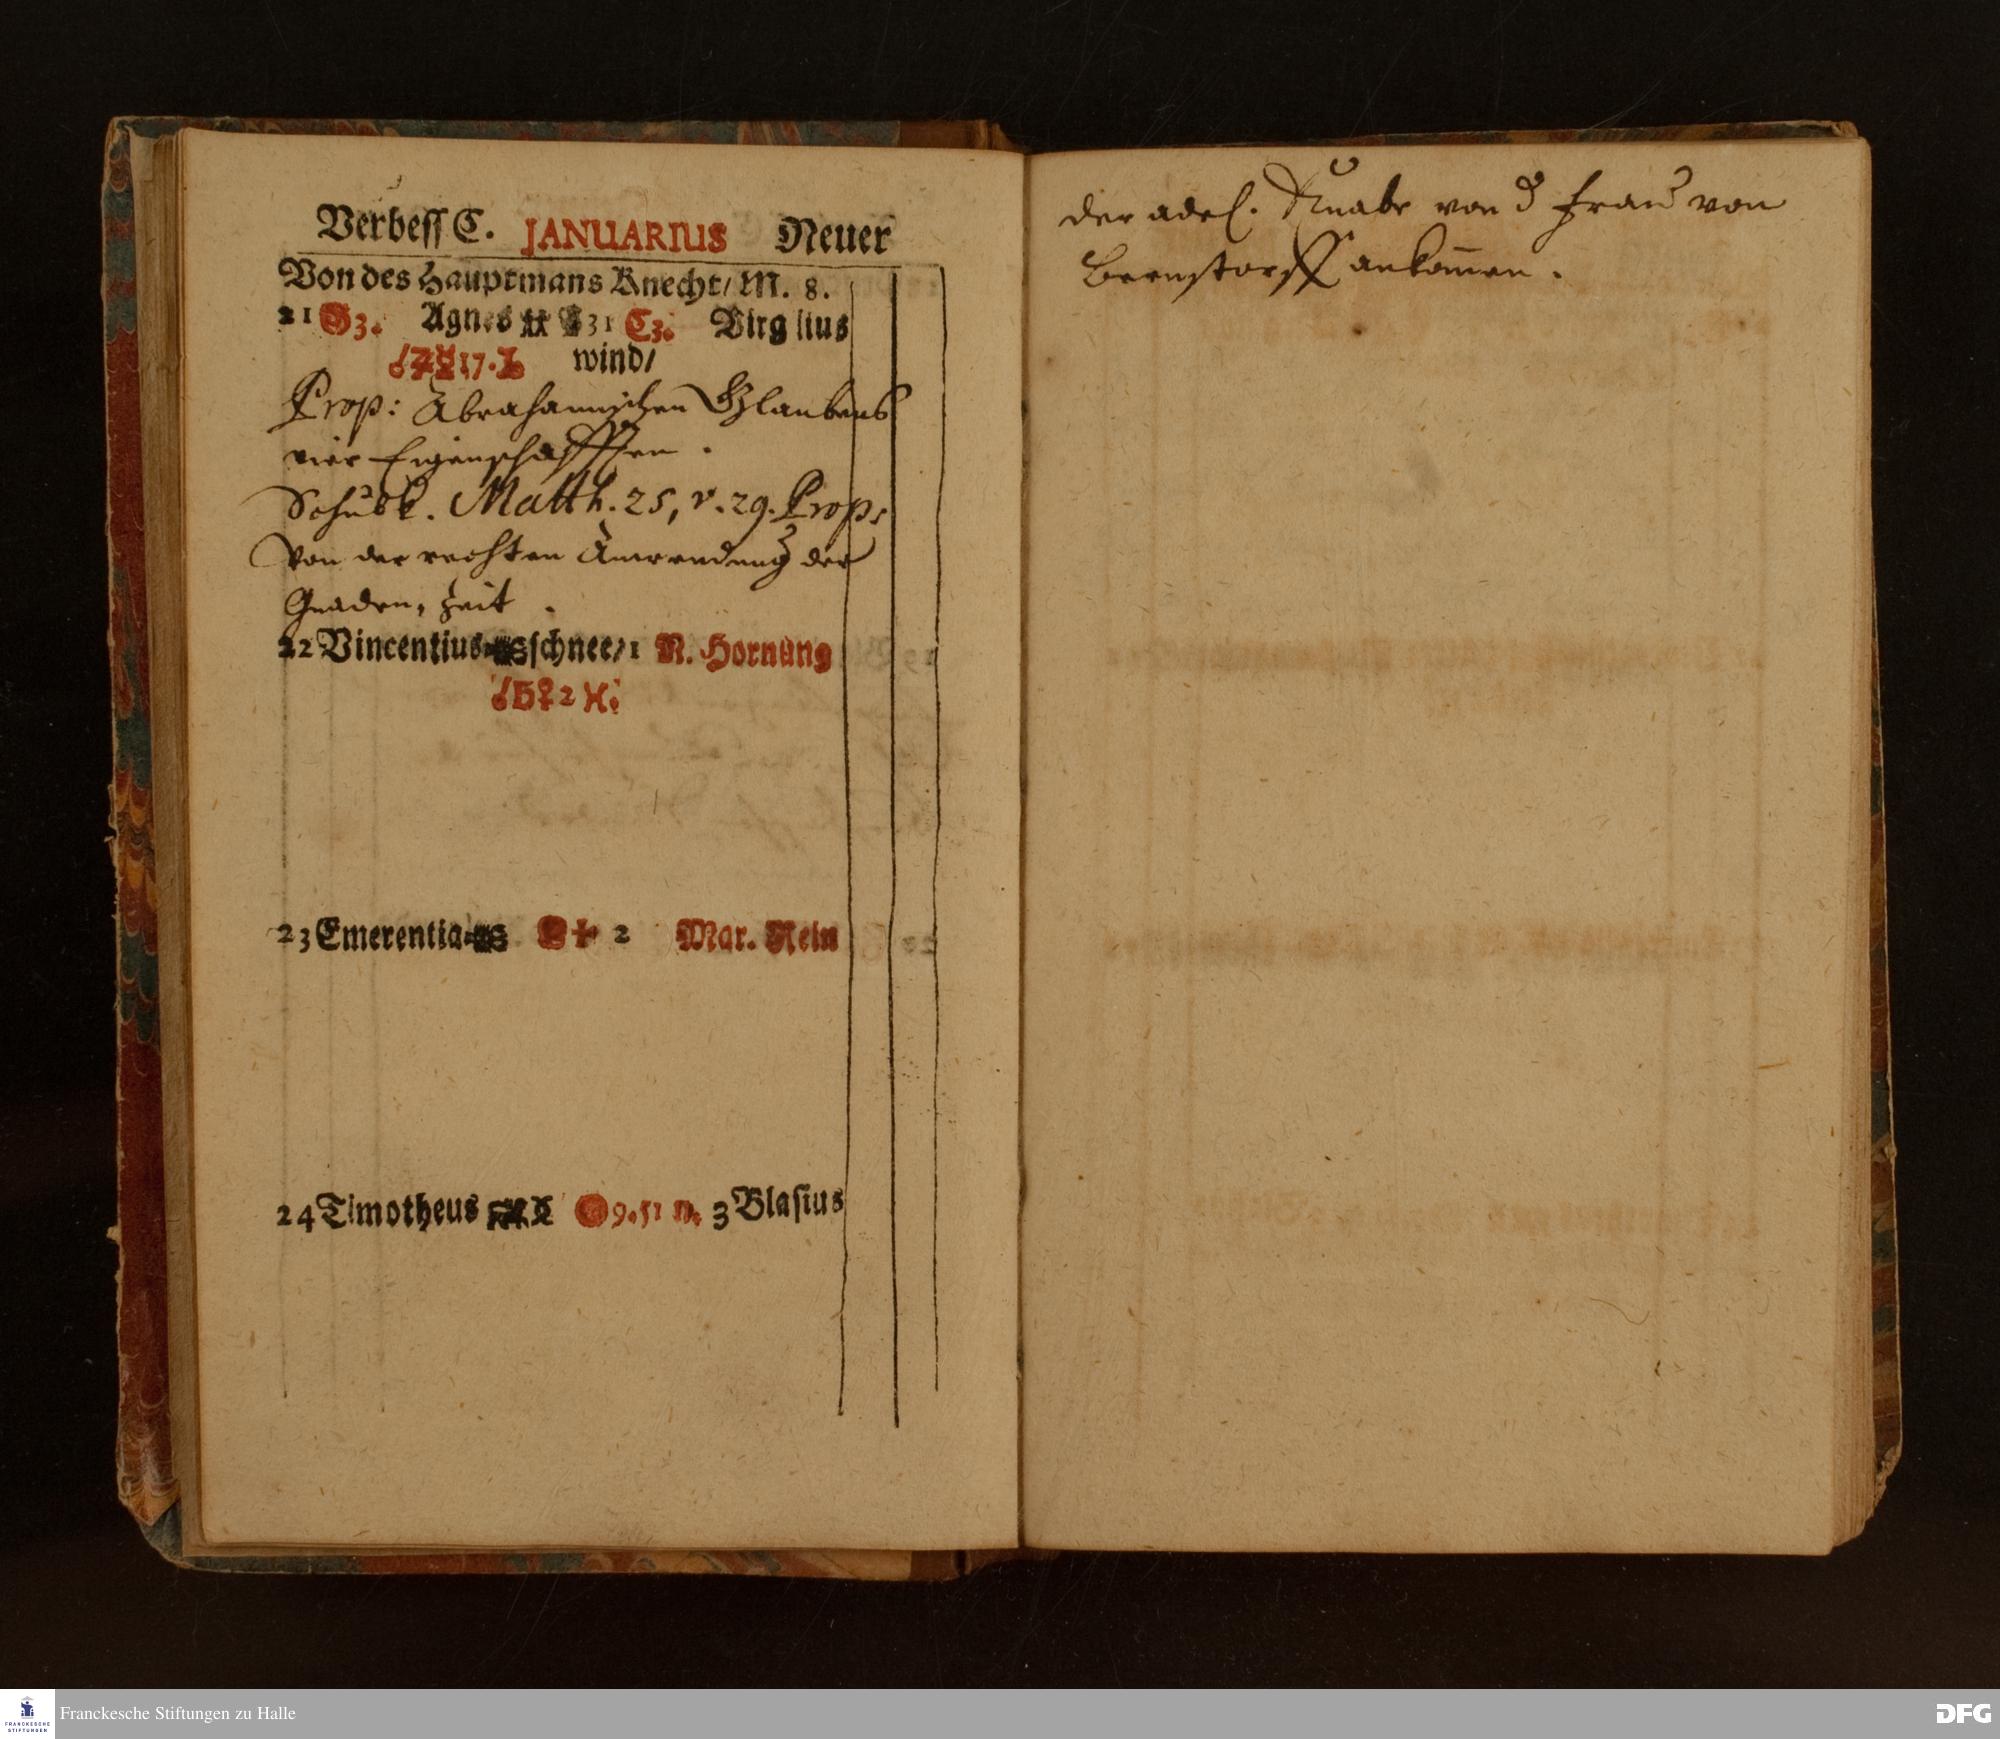 Verbeſſ C. JANUARIUS Neuer
Von des Hauptmans Knecht/ M. 8.
21 G3. Agnes 31 C3. Virgilius
☌♃☿17. wind/
Prop: Abrahamischen Glaubens
vier Eigenschafften.
Schub.k. Matth. 25, v. 29. Prop:
Von der rechten Anwendung der
Gnaden, Zeit.
22 Vincentius ſchnee/ 1 N. Hornung
☌♄♀ 2 ♓.
23 Emerentia 2 Mar. Rein
24 Timotheus 9.51 n. 3 Blaſius
der adel. Knabe von d Frau von
Bernstorff ankom̄en.
FRANCKESCHE
STIFTUNGEN
Franckesche Stiftungen zu Halle
DFG